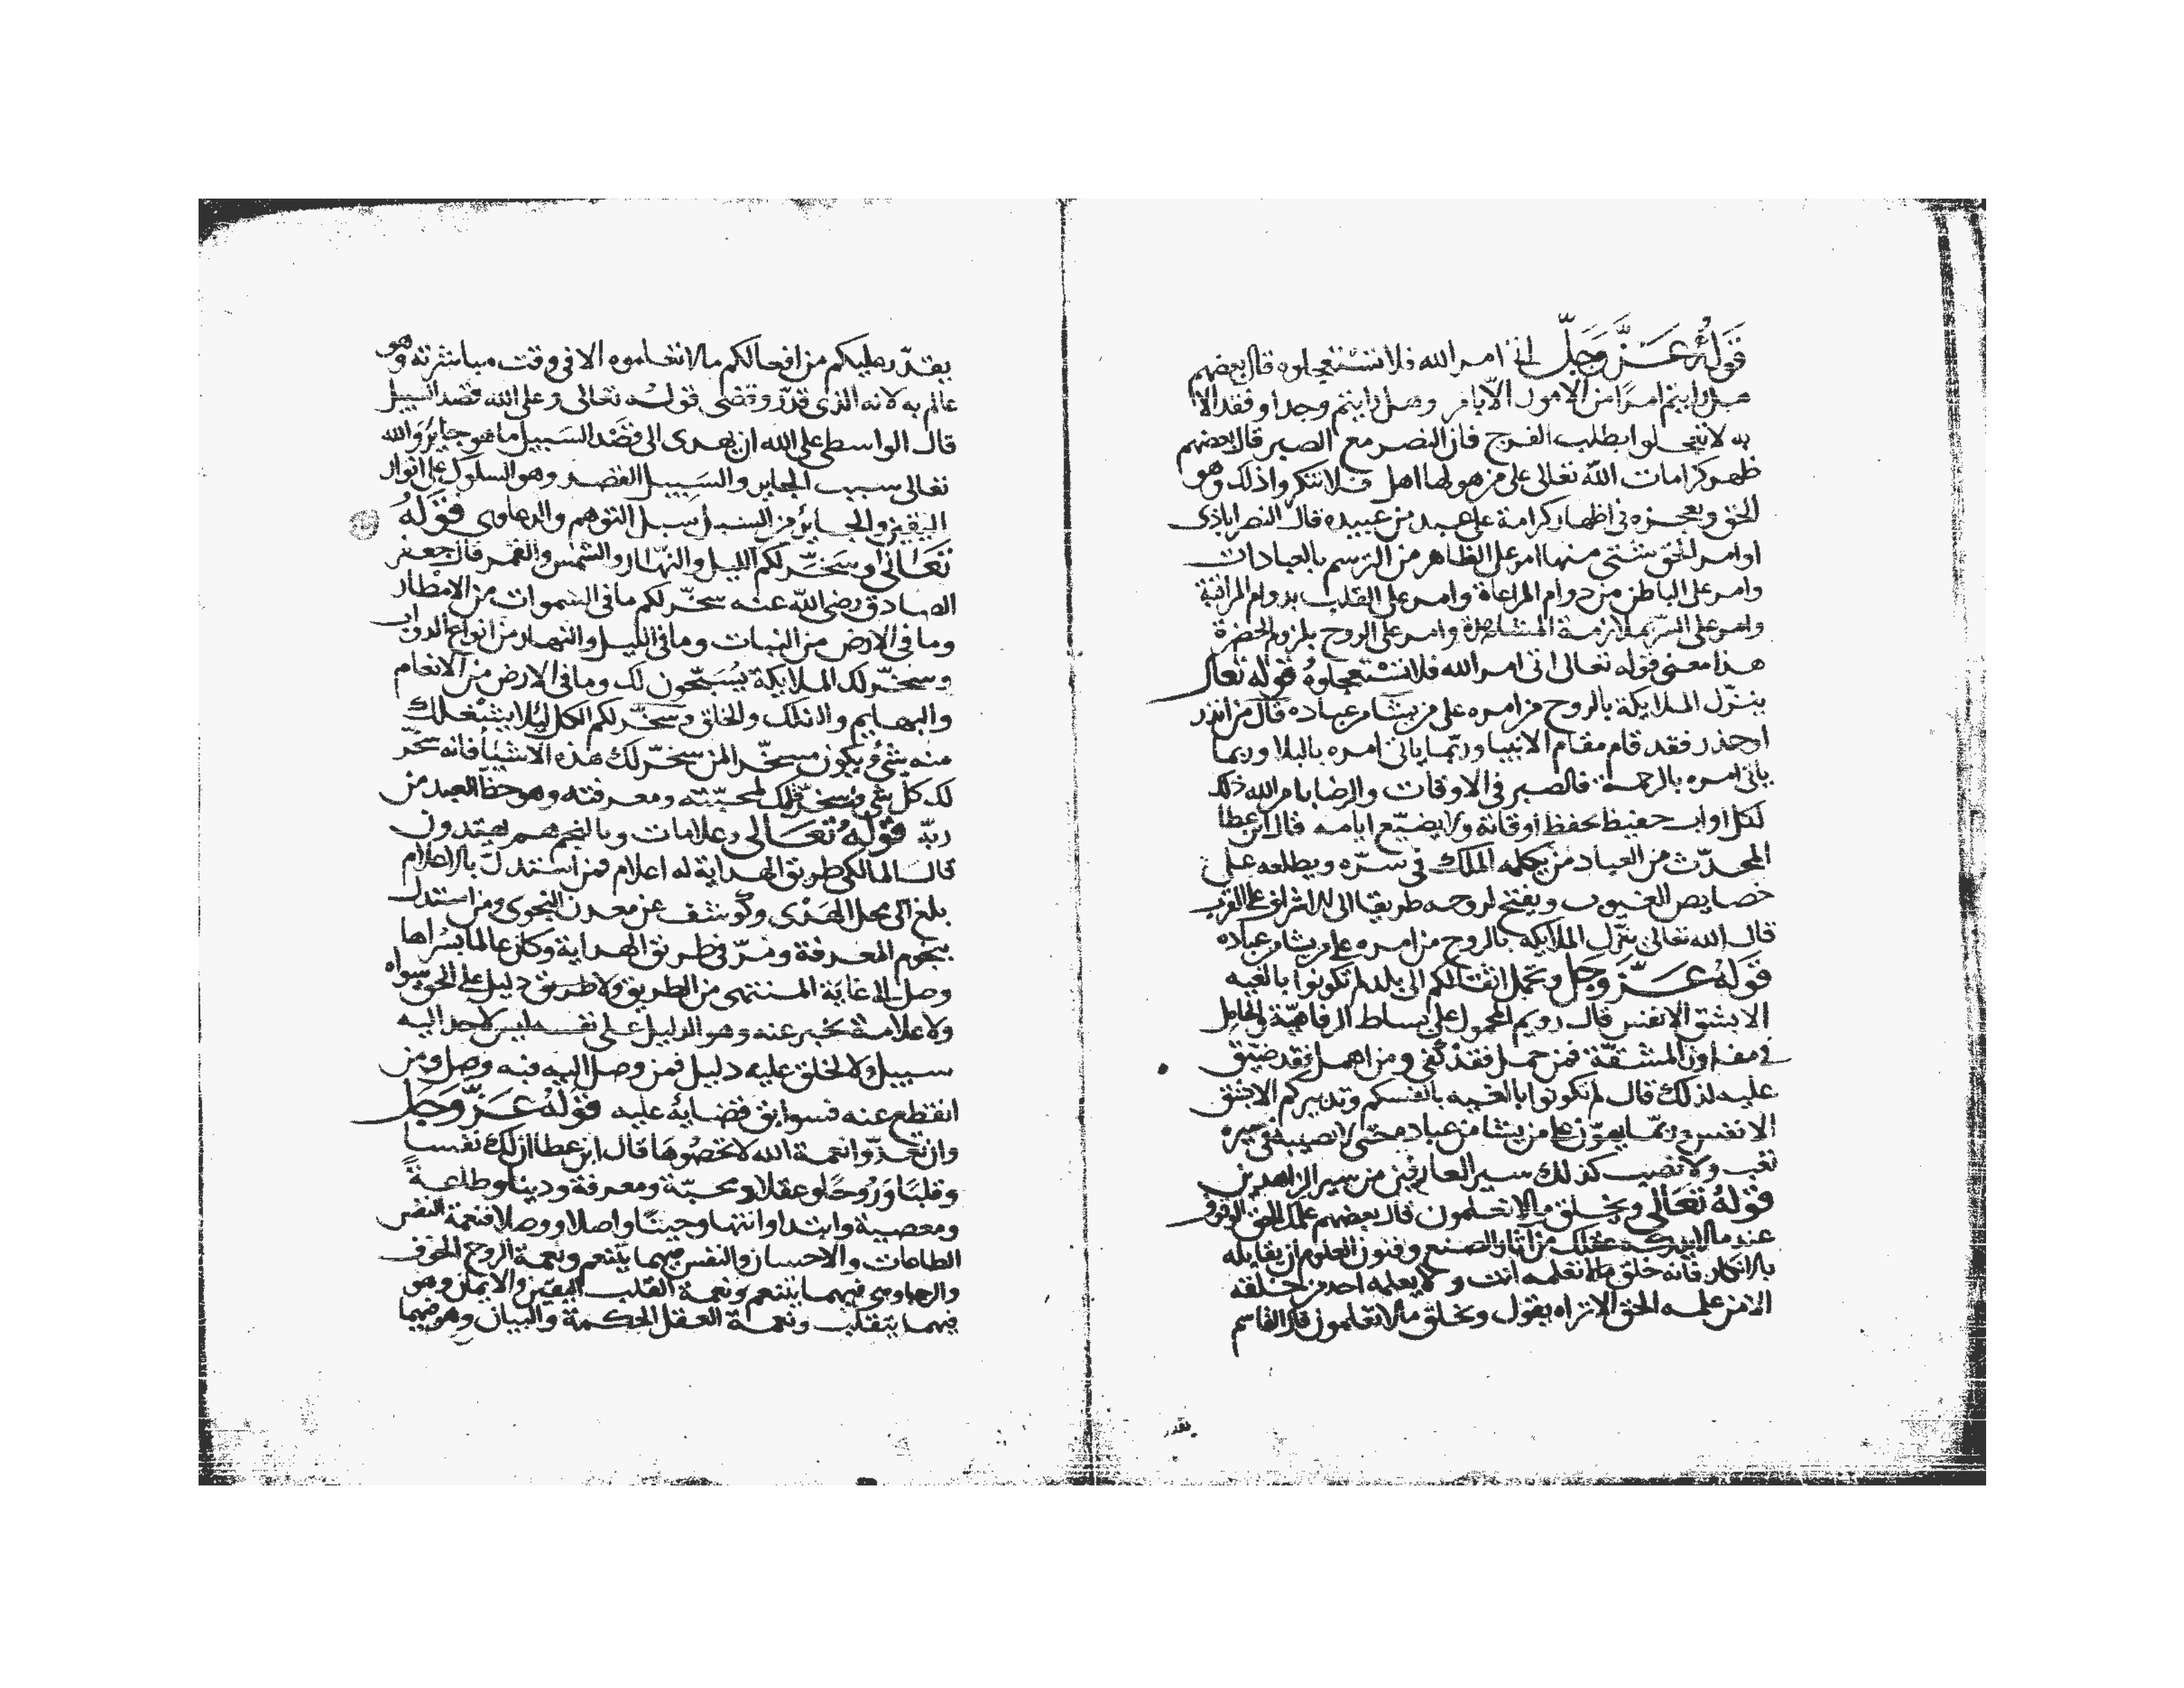 قوله عز وجل اتى امر الله فلا تستعجلوه قال بعضهم
هل رايتم امرا من الامور الا بامر وهل رايتم وجدا وفقدا الا
به لا تعجلوا بطلب الفرج فان النصر مع الصبر قال بعضهم
ظهور كرامات الله تعالى على من هو لها اهل فلا تنكروا ذلك وهو
الحق ويعجزه في اظهار كرامة على عبد من عبيده قال النصراباذى
اوامر الحق شتى منها امر على الظاهر من الترسم بالعبادات
وامر على الباطن من دوام المراعاة وامر على القلب بدوام المراقبة
وامر على السر بملازمة المشاهدة وامر على الروح بلزوم الحضرة
هذا معنى قوله تعالى اتى امر الله فلا تستعجلوه قوله تعالى
ينزل الملايكة بالروح من امره على من يشا من عباده قال من انذر
او حذر فقد قام مقام الانبيا وربما ياتى امره بالبلا وربما
ياتى امره بالرحمة فالصبر فى الاوقات والرضا بامر الله ذلك
لكل اواب حفيظ يحفظ اوقاته ولا يضيع ايامه قال ابن عطا
المحدث من العباد من يكلمه الملك فى سره ويطلعه على
خصايص الغيوب ويفتح لروحه طريقا الى الاشراف على القرب
قال الله تعالى ينزل الملايكة بالروح من امره على من يشا من عباده
قوله عز وجل وتحمل اثقالكم الى بلد لم تكونوا بالغيه
الا بشق الانفس قال رويم المحمول على بساط الرفاهية والحامل
فى مفاوز المشقة فمن حمل فقد كفى ومن اهمل فقد ضيق
عليه لذلك قال لم تكونوا بالغيه بانفسكم وتدبيركم الا بشق
الانفس وربما يهون على من يشا من عباده حتى لا نصيبه فى سيره
تعب ولا نصب كذلك سير العارفين من سير الزاهدين
قوله تعالى ويخلق ما لا تعلمون قال بعضهم علمك الحق الوقوف
عند ما لا يدركه عقلك من آثار الصنع وفنون العلوم ان يقابله
بالانكار فانه خلق ما لا تعلمه انت ولا يعلمه احد من خلقه
الا من علمه الحق الا تراه يقول ويخلق ما لا تعلمون قال القاسم
يقدر
يقدر عليكم من افعالكم ما لا تعلموه الا فى وقت مباشرته وهو
عالم به لانه الذى قدر وقضى قوله تعالى وعلى الله قصد السبيل
قال الواسطى على الله ان يهدى الى قصد السبيل ما هو جاير والله
تعالى سبب الجاير والسبيل القصد وهو السلوك على انوار
اليقين والجاير من السبيل سبيل التوهم والدعاوى قوله
تعالى وسخر لكم الليل والنهار والشمس والقمر قال جعفر
الصادق رضى الله عنه سخر لكم ما فى السموات من الامطار
وما فى الارض من النبات وما فى الليل والنهار من انواع الدواب
وسخر لك الملايكة يسبحون لك وما فى الارض من الانعام
والبهايم والفلك والخلق وسخر لكم الكل ليلا يشغلك
منه شئ ويكون مسخرا لمن سخر لك هذه الاشيا فانه سخر
لك كل شى وسخر قلبك لمحبته ومعرفته وهو حظ العبد من
ربه قوله تعالى وعلامات وبالنجم هم يهتدون
قال المالكى طريق الهداية له اعلام فمن استدل بالاعلام
بلغ الى محل الهدى وكوشف عن معدن النجوى ومن استدل
بنجوم المعرفة ومر فى طريق الهداية وكان عالما بسراها
وصل الا غاية المنتهى من الطريق ولا طريق دليل على الحق سواه
ولا علامة تخبر عنه وهو الدليل على نفسه ليس لاحد اليه
سبيل ولا لخلق عليه دليل فمن وصل اليه فبه وصل ومن
انقطع عنه فسوابق قضايه عليه قوله عز وجل
وان تعدوا نعمة الله لا تحصوها قال ابن عطا ان لك نفسا
وقلبا وروحا وعقلا ومحبة ومعرفة ودينا وطاعة
ومعصية وابتدا وانتها وحينا واصلا ووصلا فنعمة النفس
الطاعات والاحسان والنفس فيهما يتنعم ونعمة الروح الخوف
والرجا وهى فيهما يتنعم ونعمة القلب اليقين والايمان وهو
فيهما يتقلب ونعمة العقل الحكمة والبيان وهو فيهما